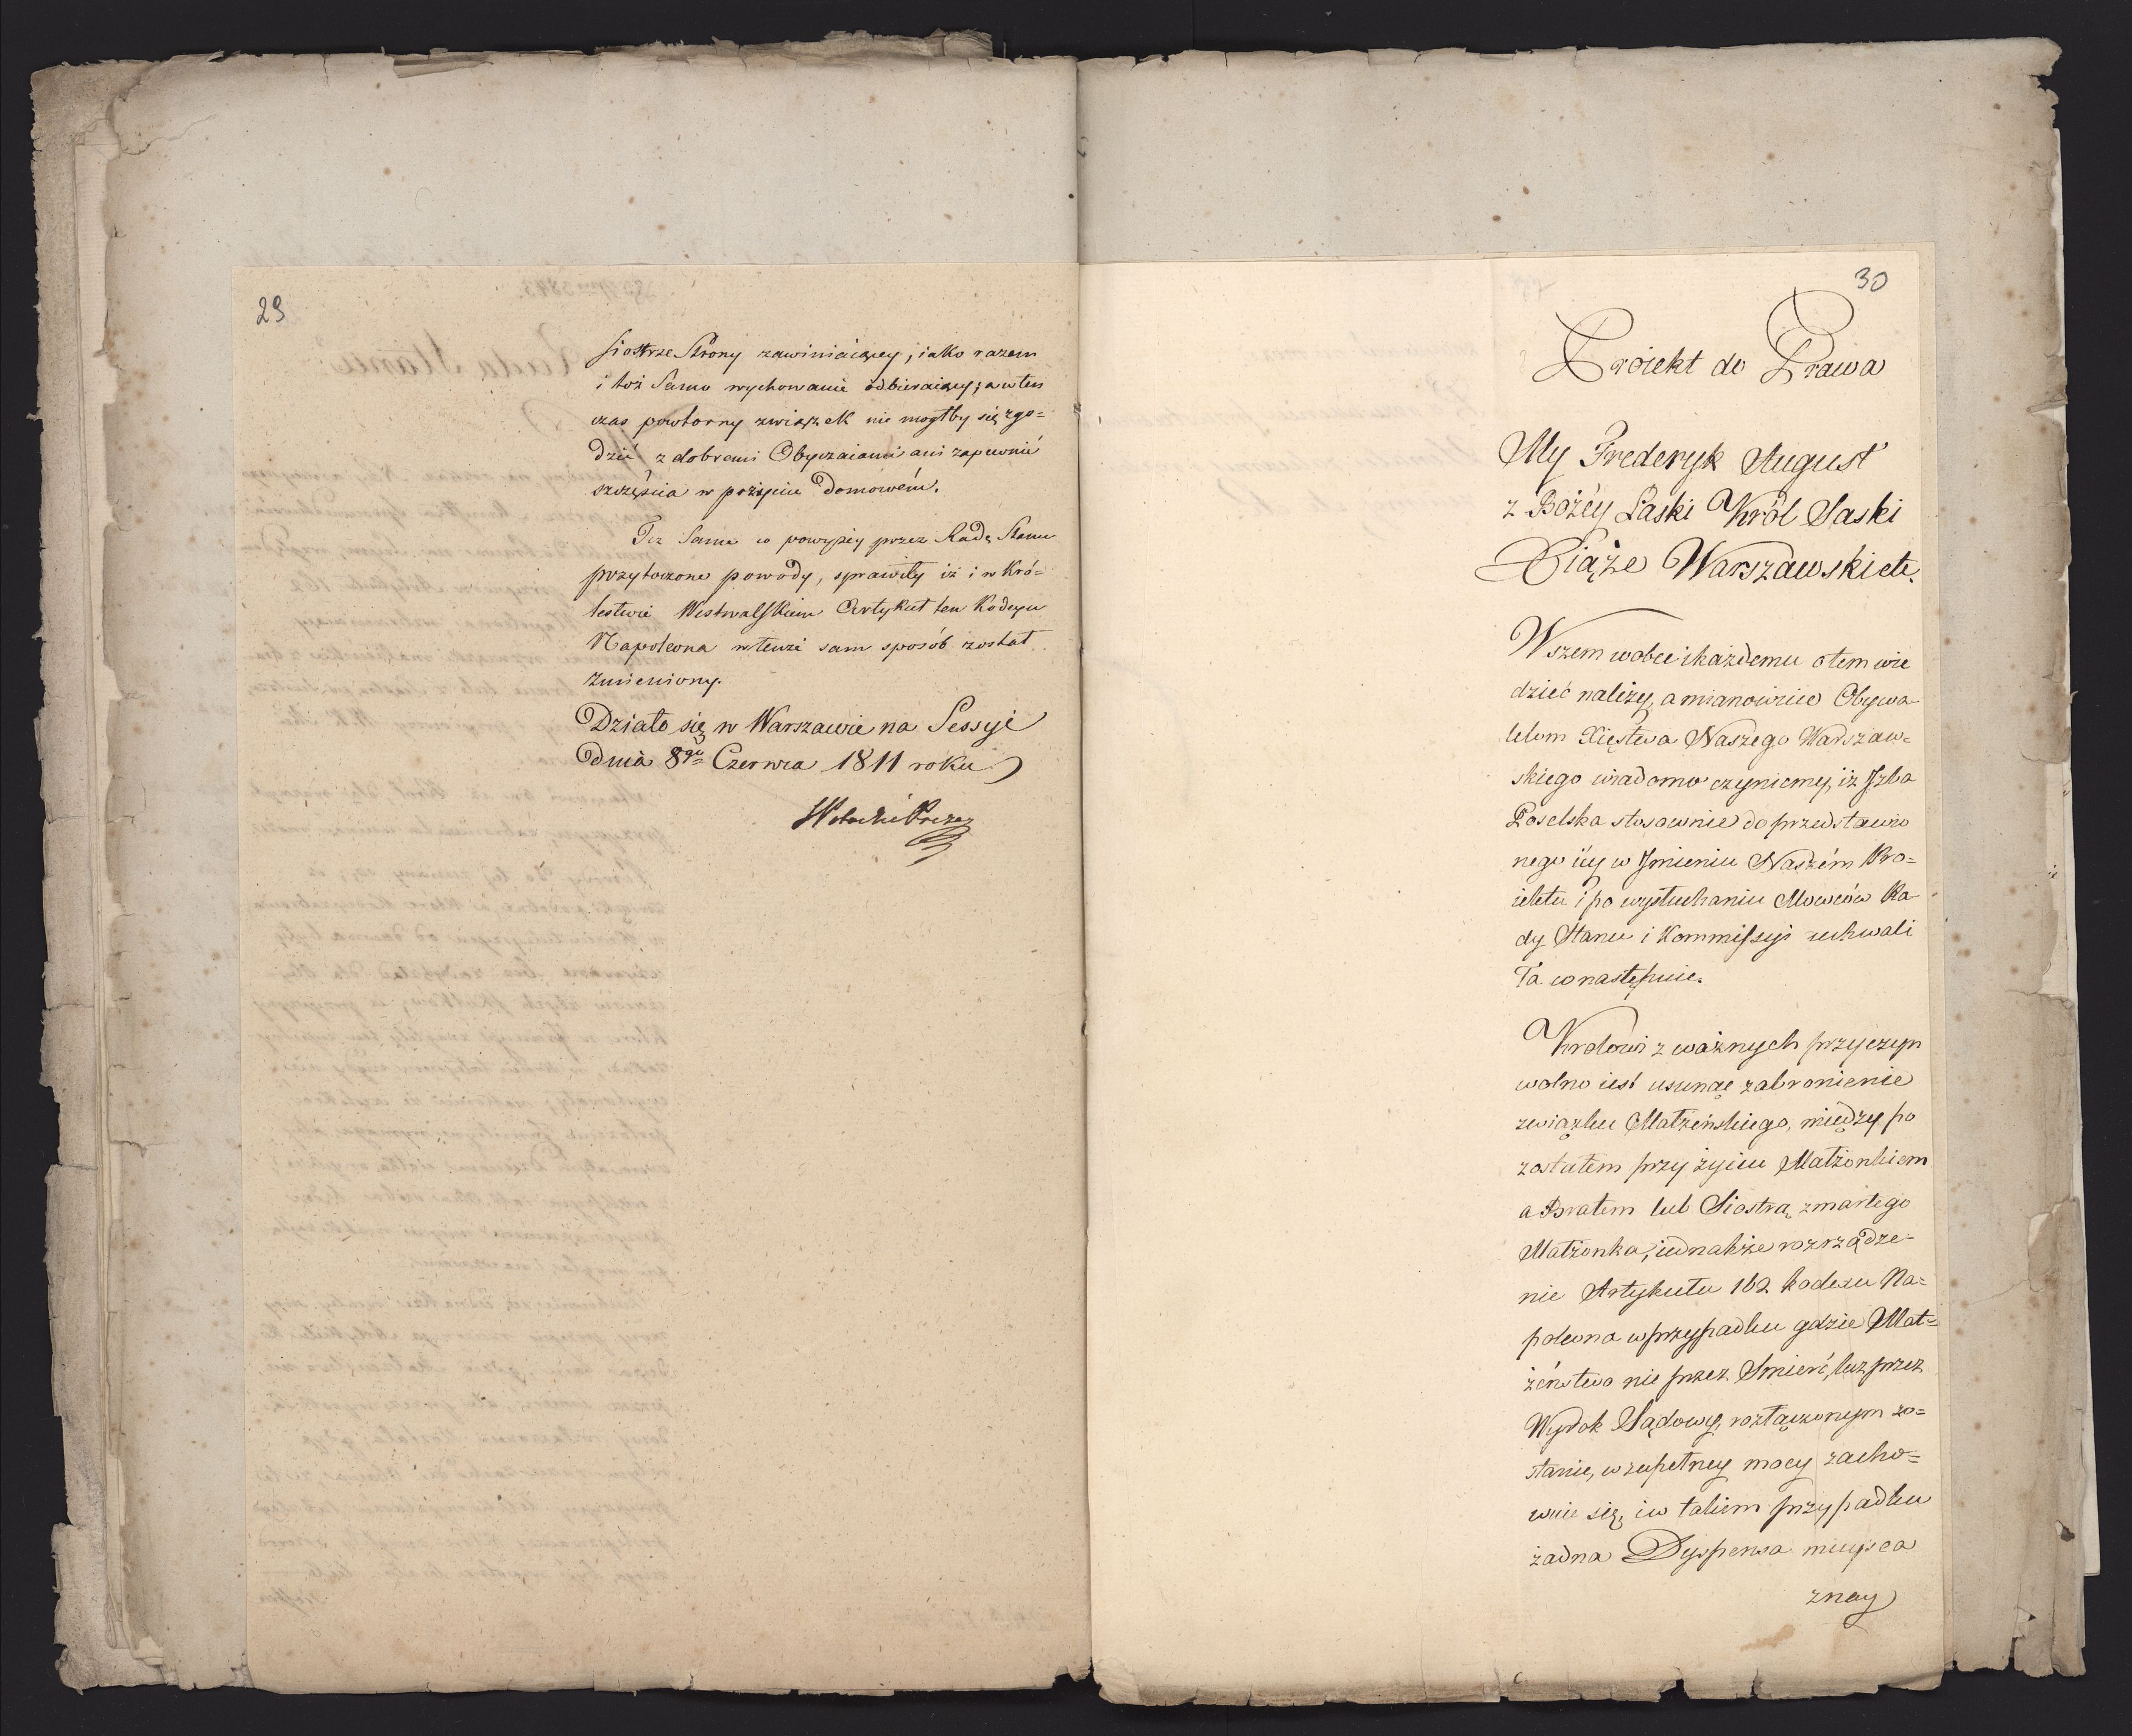 29
siostrze Strony zawiniaiącey, iako razem
i toż Samo wychowanie odbieraiący; a w ten
czas powtorny związek nie mogłby się zgo=
dzić z dobremi Obyczaiami ani zapewnić
szczęścia w pożyciu Domowém.
Też Same co powyżey przez Radę Stanu
przytoczone powody, sprawiły iż i w Kró=
lestwie Westwalskiem Artykuł ten Kodexu
Napoleona w tenże sam sposób został
zmieniony.
Działo się w Warszawie na Sessyi
Dnia 8go Czerwca 1811 roku
30
Proiekt do Prawa
My Frederyk August
z Bożéy Łaski Król Saski
Xiąże Warszawski etc.
Wszem wobec i każdemu o tem wie
dzieć należy, a mianowicie Obywa
telom Xięstwa Naszego Warszaw=
skiego wiadomo czyniemy, iż Izba
Poselska stosownie do przedstawio
nego iéy w Imieniu Naszém Pro=
iektu i po wysłuchaniu Mowców Ra
dy Stanu i Kommissyi uchwali
ła co następuie.
Królowi z ważnych przyczyn
wolno iest usunąć zabronienie
związku Małżeńskiego, między po
zostałem przy życiu Małżonkiem
a Bratem lub Siostrą zmarłego
Małżonka, iednakże rozrządze=
nie Artykułu 162 Kodexu Na=
poleona w przypadku gdzie Mał=
żeństwo nie przez Smierć, lecz przez
Wyrok Sądowy, rozłączonym zo=
stanie, w zupełney mocy zacho=
wuie się, i w takiem przypadku
żadna Dyspensa mieysca
znay